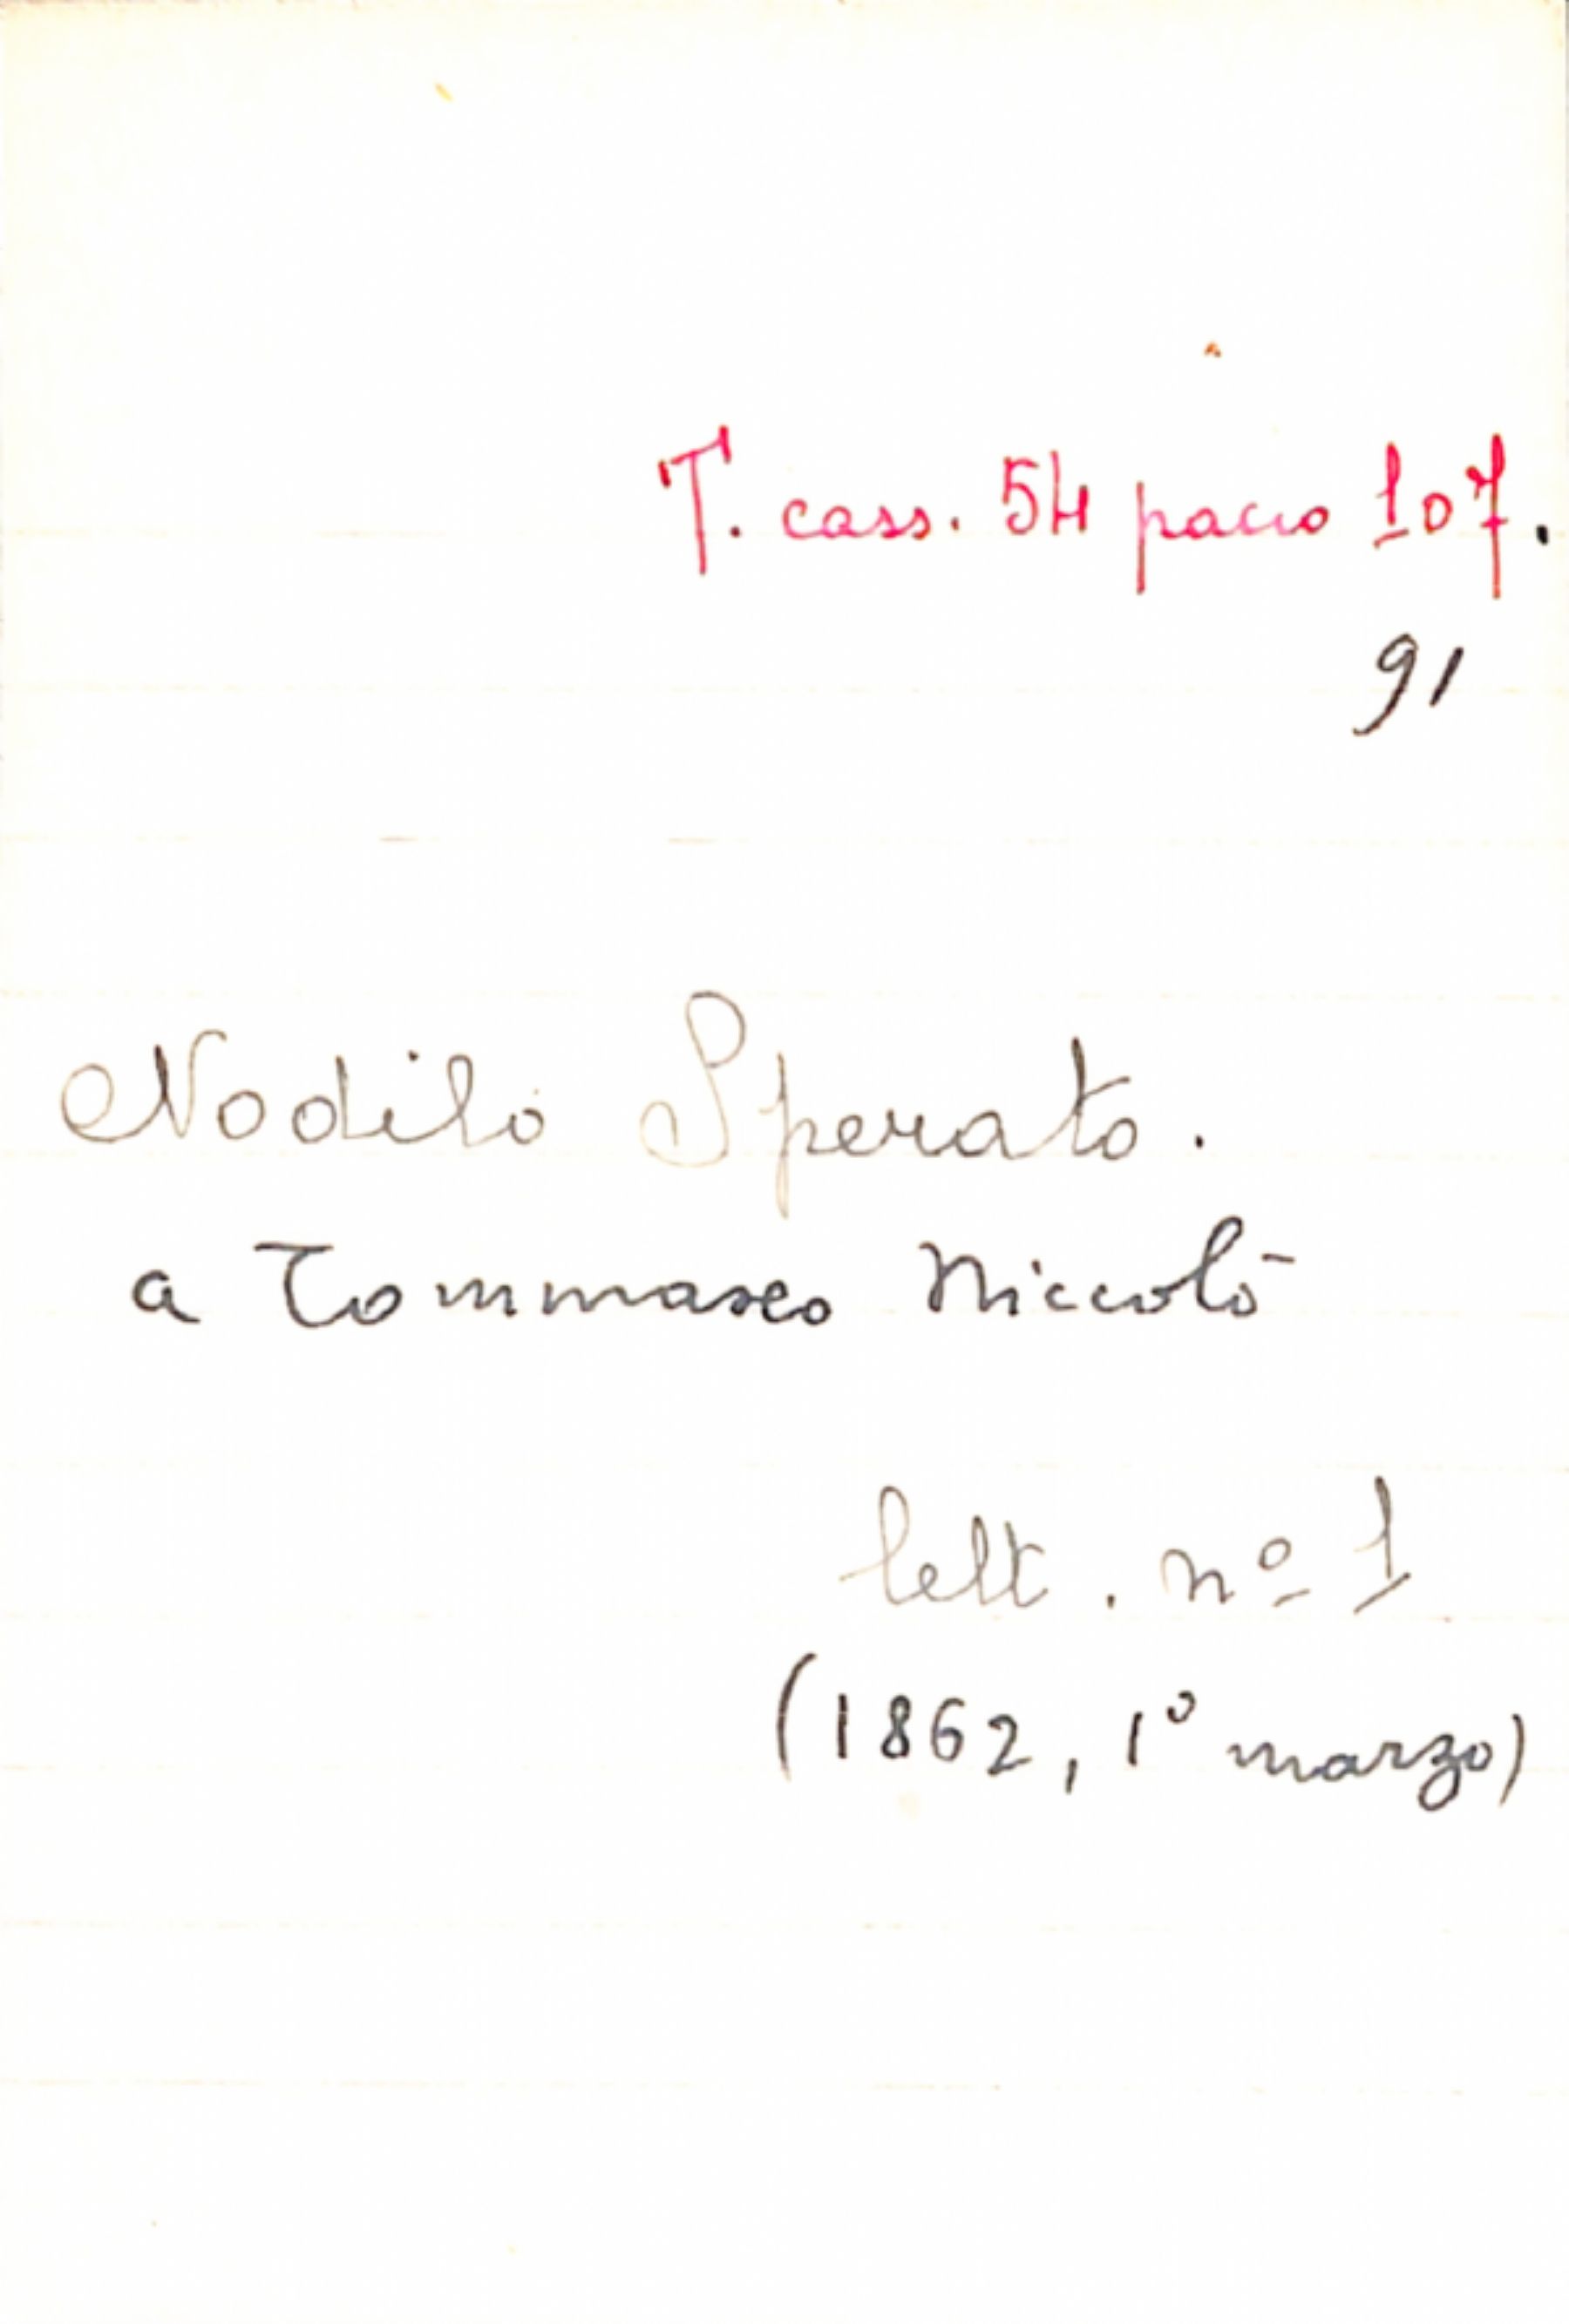 T. cass. 54 pacco 107.
91
Nodilo Sperato.
a Tommaseo Niccolò
lett. nº 1
(1862, 1º marzo)